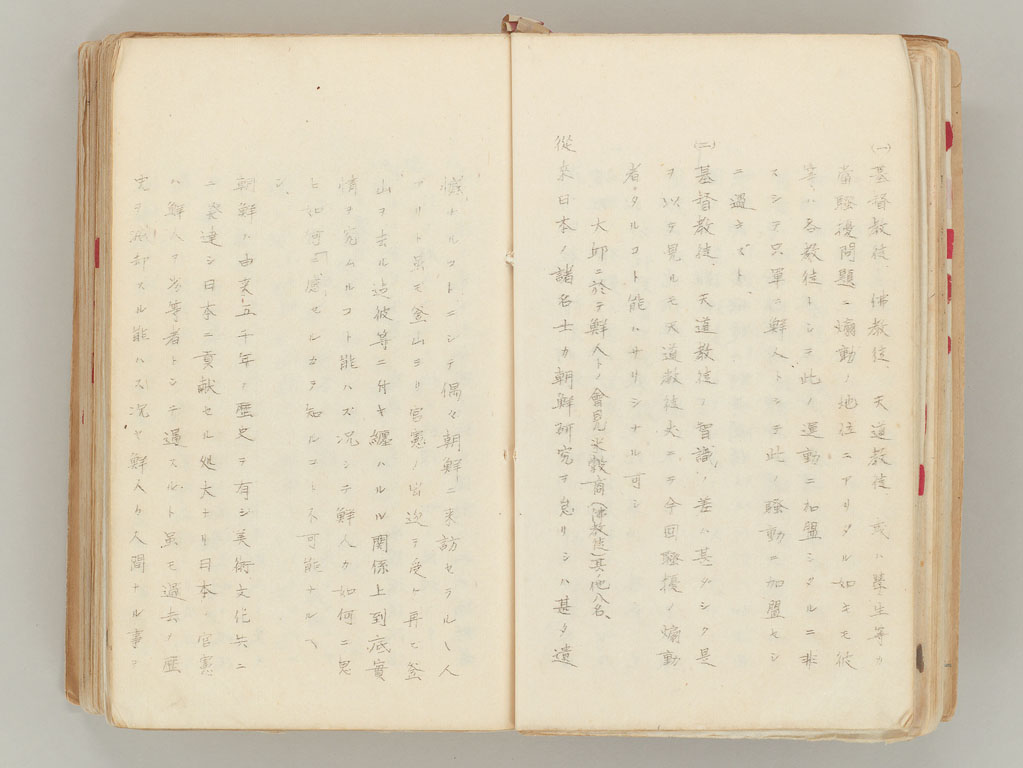 (一)基督教徒、佛教徒、天道教徒或ハ學生等カ
當騒擾問題ニ煽動ノ地位ニアリタル如キモ彼
等ハ各教徒トシテ此ノ運動ニ加盟シタルニ非
スシテ只單ニ鮮人トシテ此ノ騒動ニ加盟セシ
ニ過キズト、
(二)基督教徒ト天道教徒ノ智識ノ差ハ甚ダシク是
ヲ以テ見ルモ天道教徒夫ニテ今回騒擾ノ煽動
者タルコト能ハサリシナル可シ
大邱ニ於テ鮮人トノ會見米穀商(佛教徒)其他八名、
從来日本ノ諸名士カ朝鮮研究ヲ怠リシハ甚タ遺
憾ナルコトニシテ偶々朝鮮ニ来訪セラルヽ人
アリト虽モ釜山ヨリ官憲ノ出迎ヲ受ケ再ヒ釜
山ヲ去ル迄彼等ニ付キ纏ハルル関係上到底實
情ヲ究ムルコト能ハズ况シテ鮮人カ如何ニ思
ヒ如何ニ感セルカヲ知ルコト不可能ナルヘ
シ、
朝鮮ハ由来五千年ノ歴史ヲ有シ美術文化共ニ
発達シ日本ニ貢献セル処大ナリ日本ノ官憲
ハ鮮人ヲ劣等者トシテ遇スルト虽モ過去ノ歴
史ヲ滅却スル能ハス况ヤ鮮人カ人間ナル事ヲ